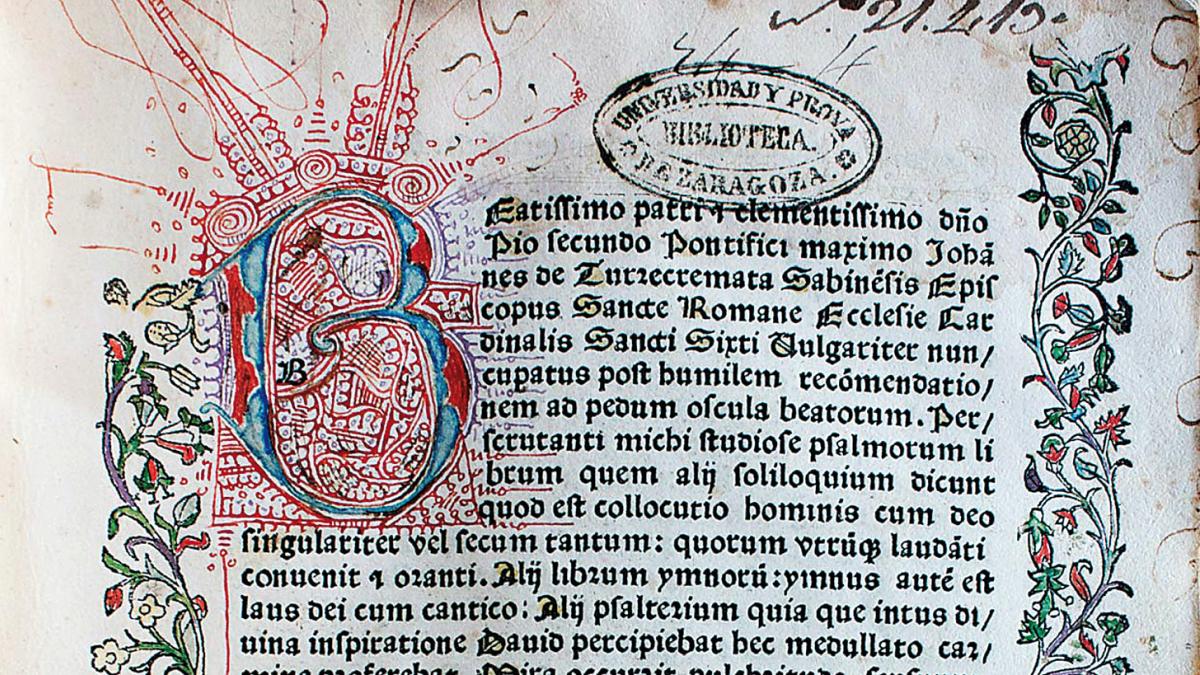 UNIVERSIDAD Y PROVA
BIBLIOTECA.
DE ZARAGOZA.
B
Eatissimo patri ⁊ clementissimo dño
Pio secundo Pontifici maximo Johā
nes de Turrecremata Sabinēsis Epis
copus Sancte Romane Ecclesie Car
dinalis Sancti Sixti Vulgariter nun/
cupatus post humilem recōmendatio/
nem ad pedum oscula beatorum. Per/
scrutanti michi studiose psalmorum li
brum quem alij soliloquium dicunt
quod est collocutio hominis cum deo
singulariter vel secum tantum: quorum vtrūqꝫ laudāti
conuenit ⁊ oranti. Alij librum ymnorū: ymnus autē est
laus dei cum cantico: Alij psalterium quia que intus di/
uina inspiratione Dauid percipiebat hec medullato car/
mine proferebat. Mira occurrit pulchritudo